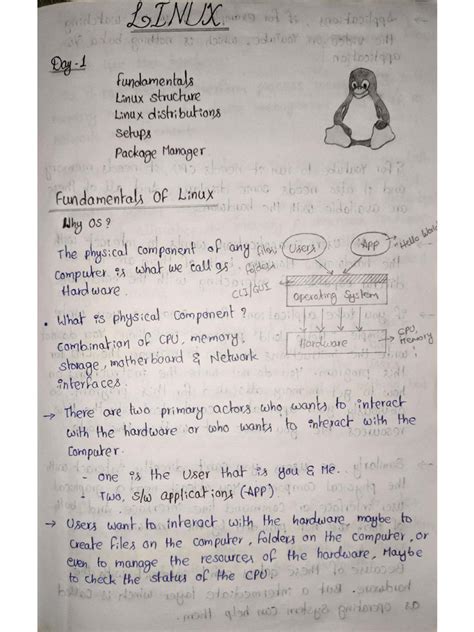 LINUX
Day-1
Fundamentals
Linux structure
Linux distributions
Setups
Package Manager
Fundamentals Of Linux
Why OS?
The physical component of any
computer is what we call as
Hardware.
files,
folders
CLI/GUI
Users
App
"Hello World"
Operating System
Hardware
CPU,
Memory
• What is physical Component?
combination of CPU, memory,
storage, motherboard & Network
interfaces.
→ There are two primary actors who wants to interact
with the hardware or who wants to interact with the
Computer.
- one is the User that is you & Me.
- Two, S/w applications (APP)
→ Users want to interact with the hardware, maybe to
create files on the computer, folders on the computer, or
even to manage the resources of the hardware, Maybe
to check the status of the CPU.